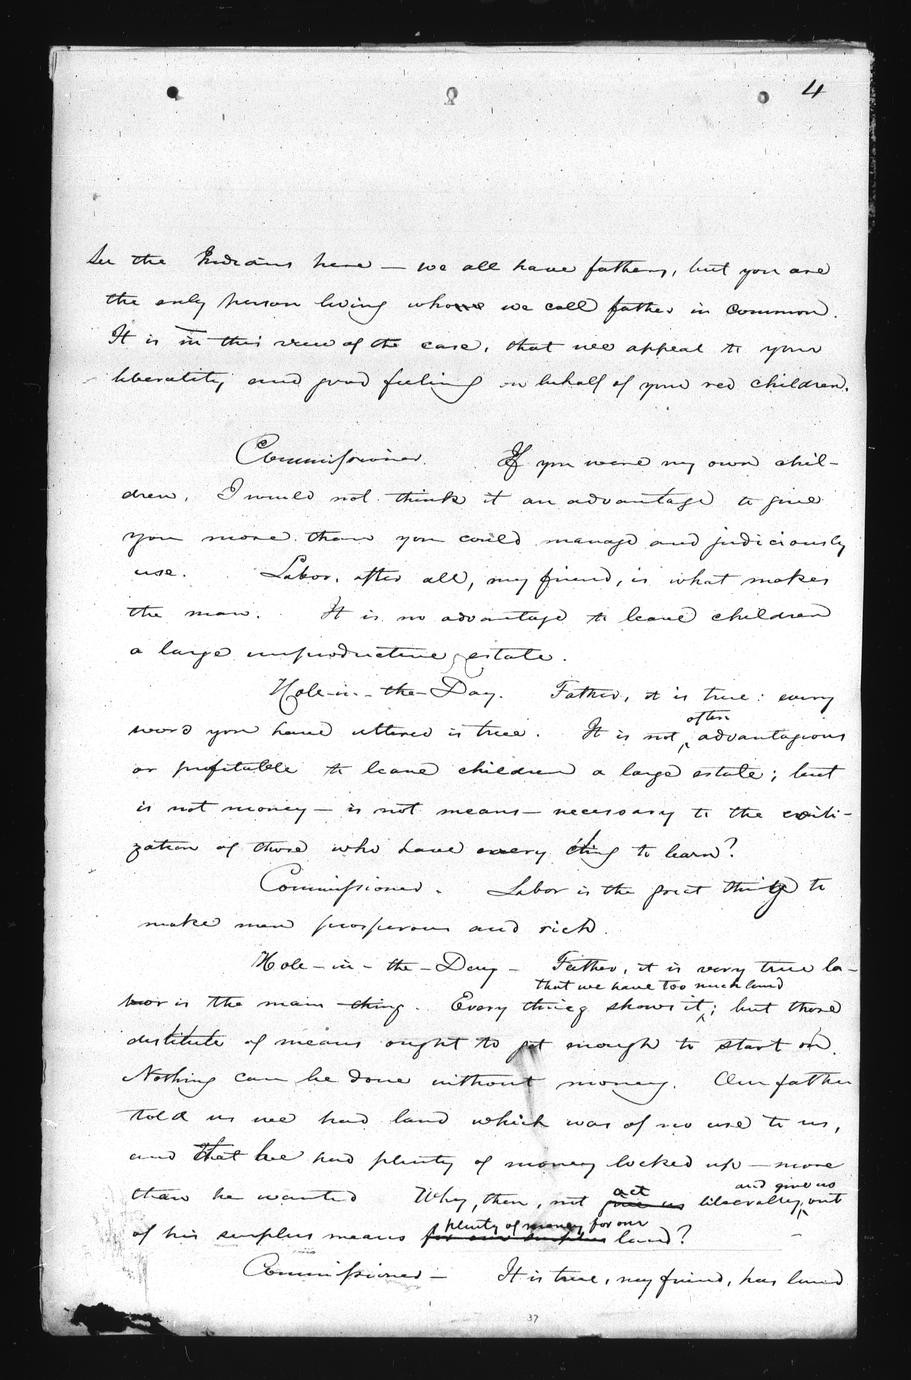 4
See the Indians here — we all have fathers, but you are
the only person living whom we call father in common.
It is in this view of the case, that we appeal to your
liberality and good feeling on behalf of your red children.
Commissioner. If you were my own chil-
dren, I would not think it an advantage to give
you more than you could manage and judiciously
use. Labor, after all, my friend, is what makes
the man. It is no advantage to leave children
a large unproductive estate.
Hole-in-the-Day. Father, it is true: every
word you have uttered is true. It is not often advantagious
or profitable to leave children a large estate; but
is not money — is not means — necessary to the civili-
zation of those who have every thing to learn?
Commissioner. Labor is the great thing to
make man prosperous and rich.
Hole-in-the-Day — Father, it is very true la-
that we have too much land
bor is the main thing. Every thing shows it; but those
destitute of means ought to get enough to start on.
Nothing can be done without money. Our father
told us we had land which was of no use to us,
and that he had plenty of money locked up — more
and give us
than he wanted Why, then, not act give us liberally, out
plenty of money for our
of his surplus means for our surplus land?
Commissioner — It is true, my friend, has land
37